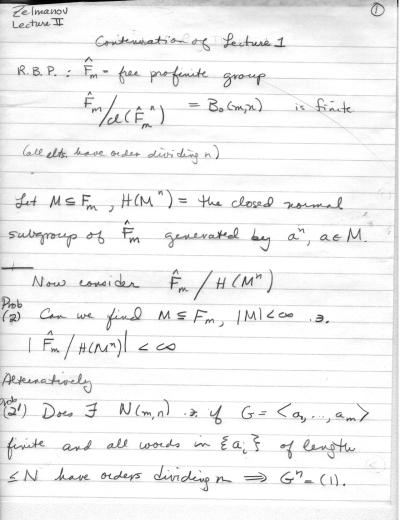 Zelmanov
Lecture II
①
Continuation of Lecture 1
R.B.P. : F̂_m = free profinite group
F̂_m / cl(F̂_m^n) = B_0(m,n) is finite
(all elts. have order dividing n)
Let M ⊆ F_m, H(M^n) = the closed normal
subgroup of F̂_m generated by a^n, a ∈ M.
Now consider F̂_m / H(M^n)
Prob
(2) Can we find M ⊆ F_m, |M| < ∞ .∋.
| F̂_m / H(M^n) | < ∞
Alternatively
Prob
(2') Does ∃ N(m,n) .∋. if G = <a_1, ..., a_m>
finite and all words in {a_i} of length
≤ N have orders dividing n ⟹ G^n = (1).